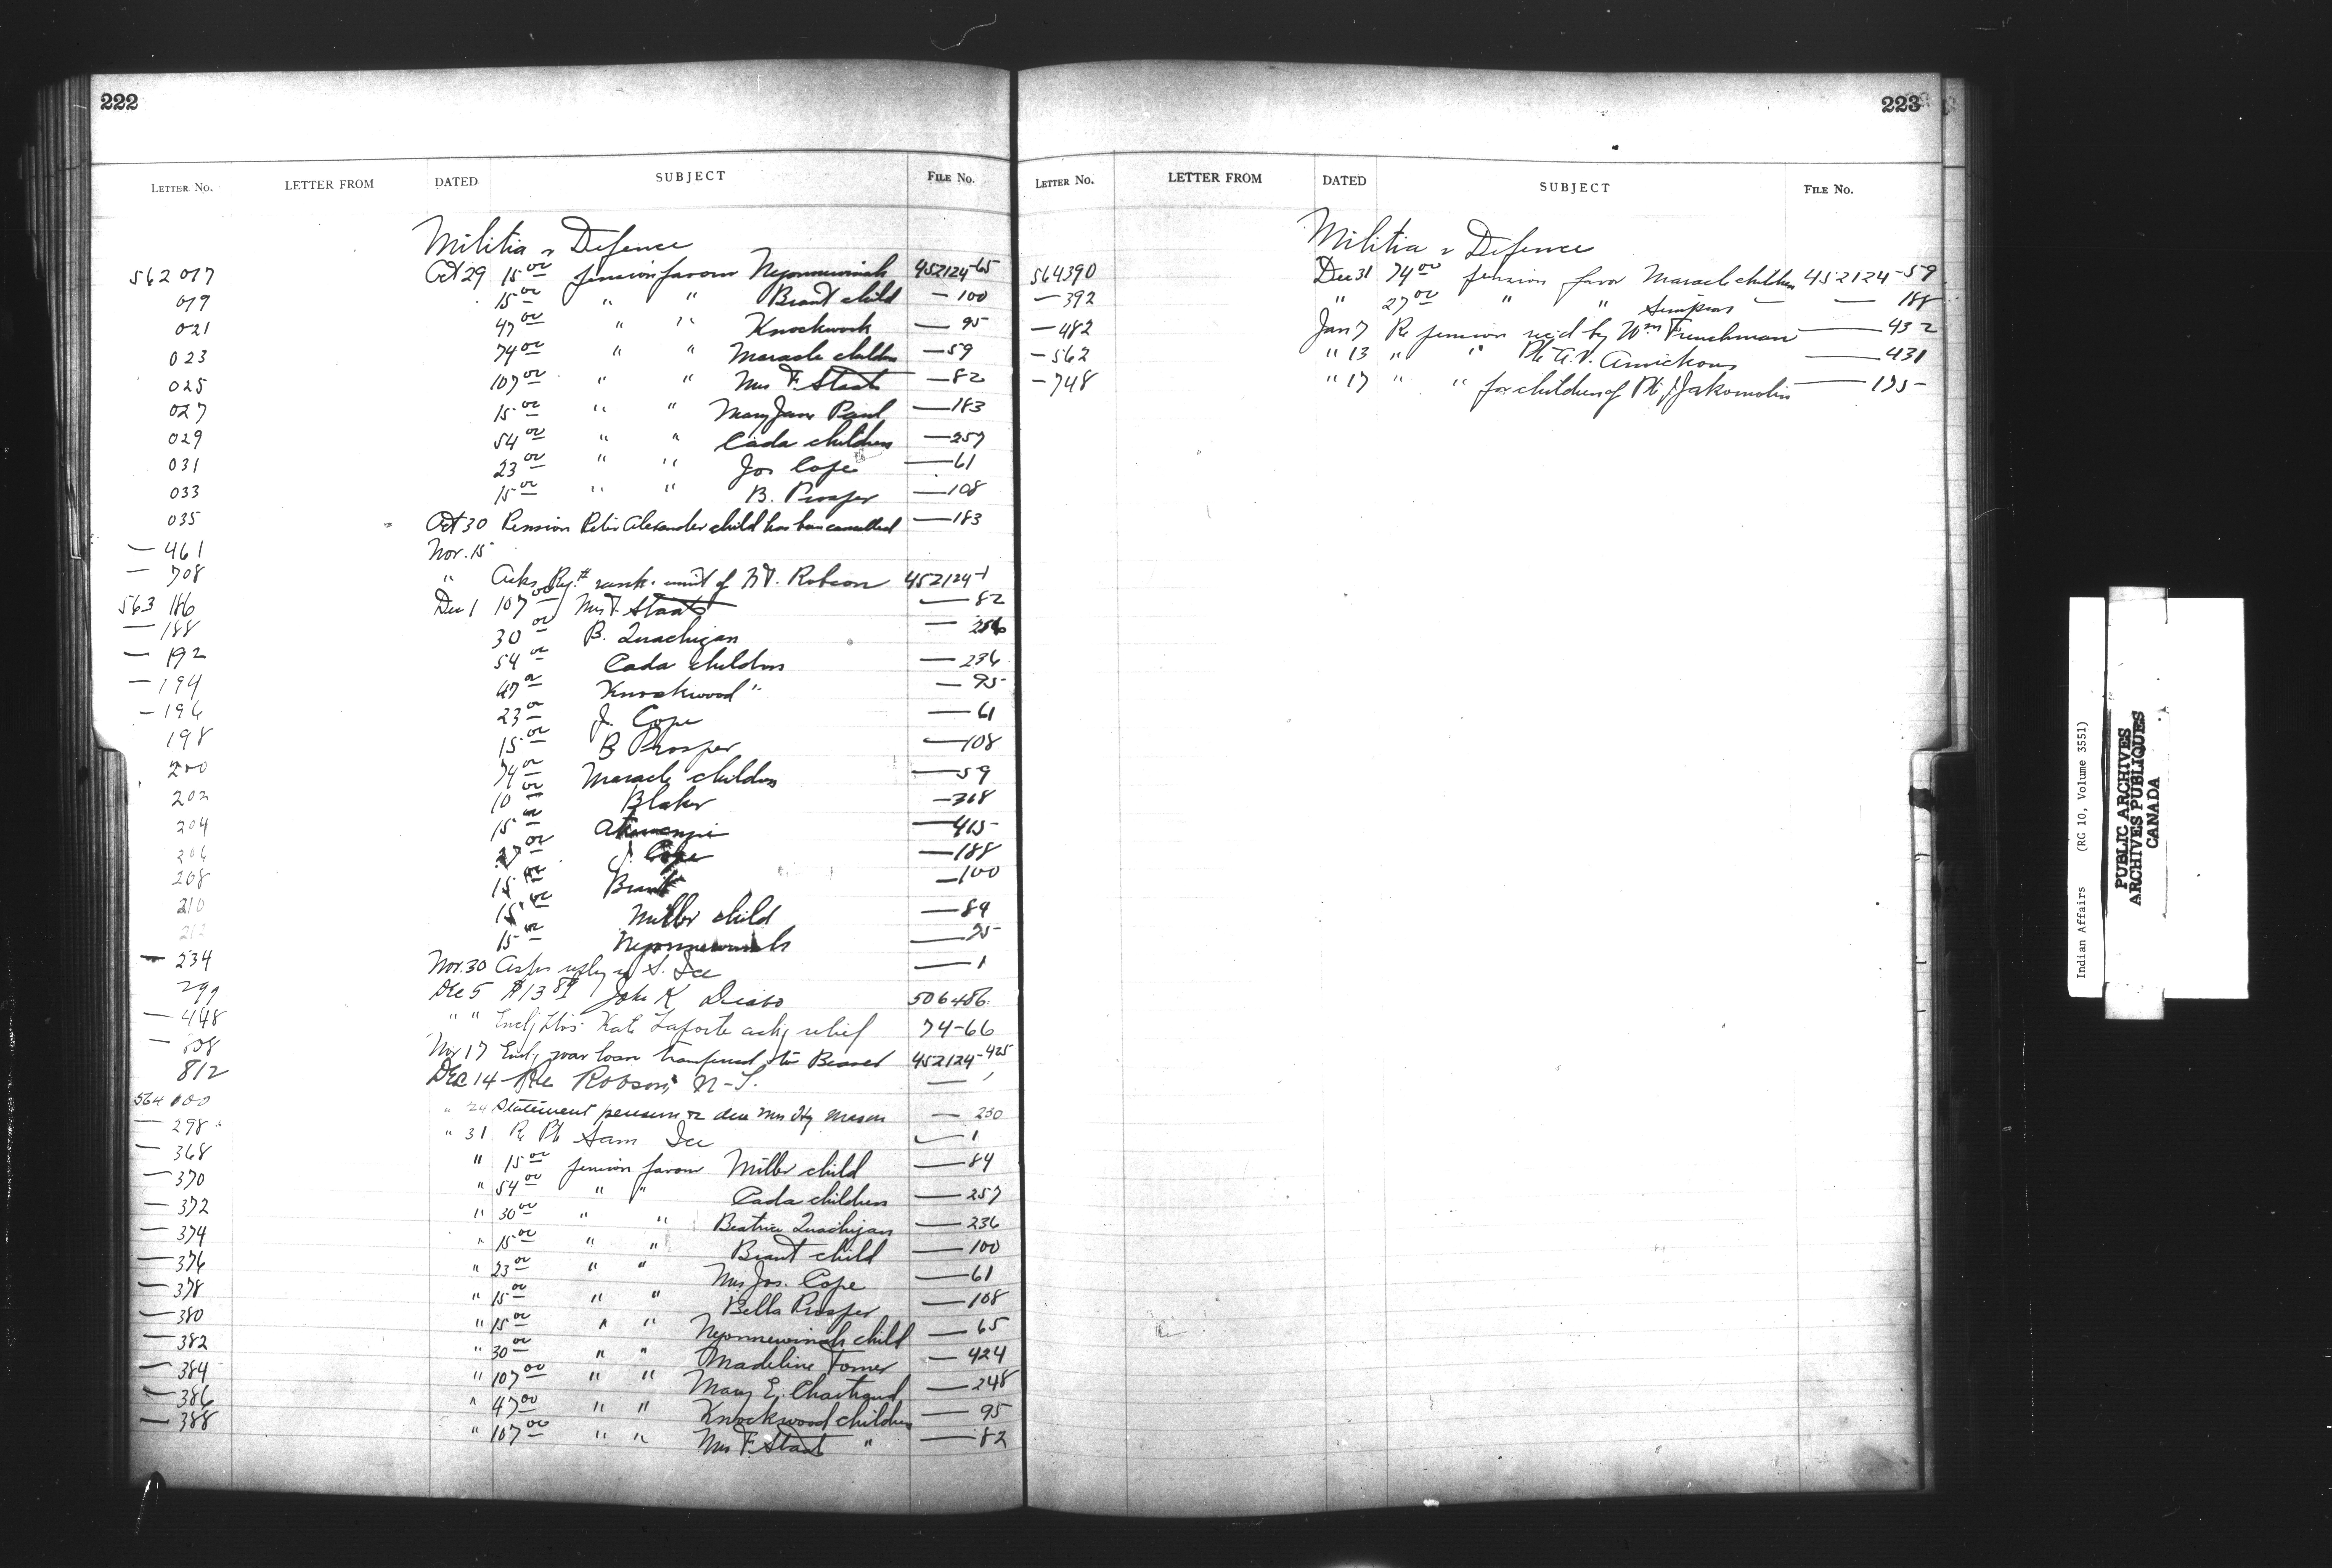 222
LETTER NO. LETTER FROM DATED SUBJECT FILE No.
Militia & Defence
562 017 Oct 29 15 00 pension favour Neponnewinish 452124-65
019 15 00 " " Brant child — 100
021 47 00 " " Knockwork — 95
023 74 00 " " Maracle children — 59
025 107 00 " " Mrs F. Staats — 82
027 15 00 " " Mary Jane Paul — 183
029 54 00 " " Cada children — 257
031 23 00 " " Jos Cope — 61
033 15 00 " " B. Prosper — 108
035 Oct 30 Pension Peter Alexander child has been cancelled — 183
— 461 Nov. 15
— 708 " Asks Reg. # rank & unit of N.T. Robson 452124-1
563 186 Dec 1 107 00 Mrs F. Staats — 82
— 188 30 00 B. Quachigan — 256
— 192 54 00 Cada children — 236
— 194 47 00 Knockwood " — 95
— 196 23 00 J. Cope — 61
198 15 00 B Prosper — 108
200 74 00 Maracle children — 59
202 10 00 Blaker — 368
204 15 00 — 415
206 27 00 J. Cope — 188
208 15 00 Brant — 100
210 15 00 Miller child — 84
212 15 00 — 75
— 234 Nov. 30 Asks reply re S. Ice — 1
299 Dec 5 $13 89 John K Diabo 506486
— 448 " " Encl. Kate Laforte askg relief 74-66
— 808 Nov 17 Encl. war loan transferred to Beaver 452124-425
812 Dec 14 Re Robson, N-T. — 1
564 100 " 24 Statement pension due Mrs Hy Mason — 230
— 298 " 31 Re Pte Sam Ice — 1
— 368 " 15 00 pension favour Miller child — 84
— 370 " 54 00 " " Cada children — 257
— 372 " 30 00 " " Beatrice Quachigan — 236
— 374 " 15 00 " " Brant child — 100
— 376 " 23 00 " " Mrs Jos. Cope — 61
— 378 " 15 00 " " Bella Prosper — 108
— 380 " 15 00 " " Neponnewinish child — 65
— 382 " 30 00 " " Madeline Tomer — 424
— 384 " 107 00 " " Mary E. Chartrand — 248
— 386 " 47 00 " " Knockwood children — 95
— 388 " 107 00 " " Mrs F. Staats " — 82
223
LETTER NO. LETTER FROM DATED SUBJECT FILE No.
Militia & Defence
564390 Dec 31 74 00 pension favor Maracle children 452124-59
— 392 " 27 00 " " Simpson — — 188
— 482 Jan 7 Re pension rec'd by Wm Frenchman — 432
— 562 " 13 " " Pte A.V. — 431
— 748 " 17 " " for children of Pte J. Jakomolin — 195
Indian Affairs (RG 10, Volume 3551)
PUBLIC ARCHIVES
ARCHIVES PUBLIQUES
CANADA